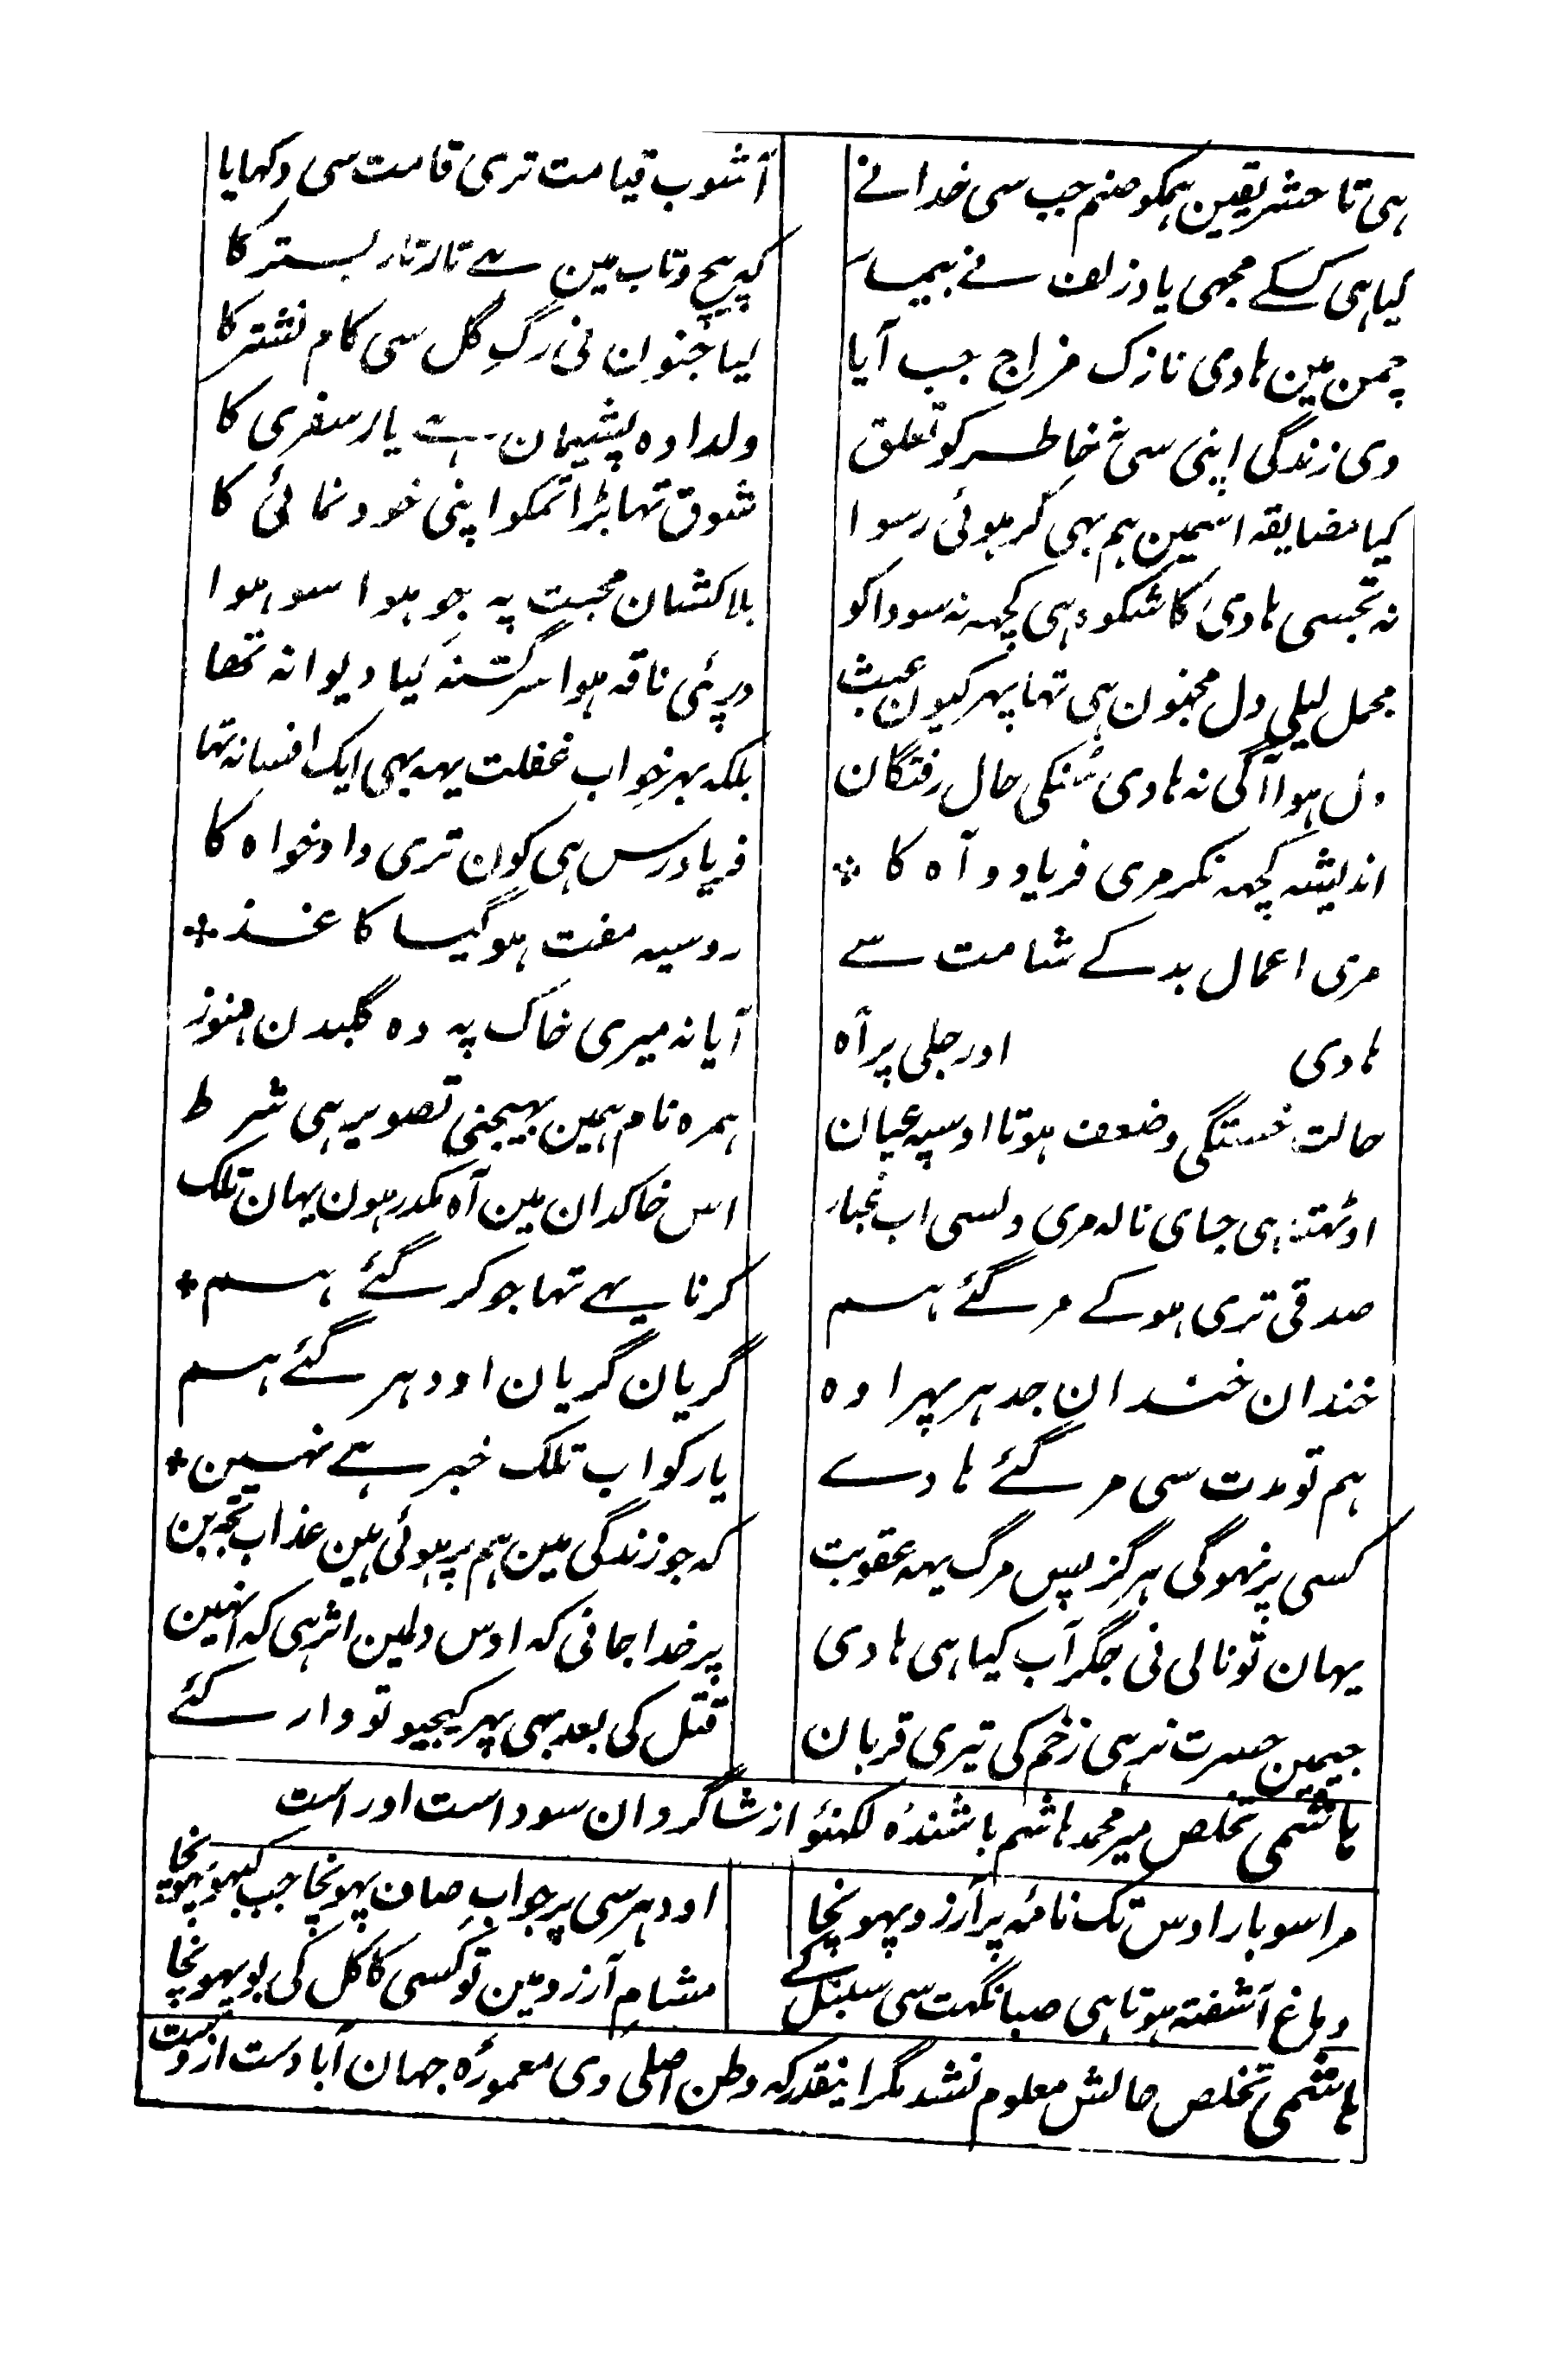 ہی تا حشر یقین ہمکو صنم جب سی خدا نے آشوب قیامت تری قامت سی دکہایا
کیا ہی کسکے مجہی یاد زلف نے بیمار کہ پیچ و تاب مین ہے تار تار بستر کا
چمن مین ہادی نازک مزاج جب آیا لیا جنون نی رگ گل سی کام نشتر کا
دی زندگی اپنی سی خاطر کو تعلق ولدادہ پشیمان ہے یار سفری کا
کیا مضایقہ اسمین ہم بہی گر ہوئی رسوا شوق تہا بڑا تمکو اپنی خود نمائی کا
نہ تجہسی ہادی کا شکوہ ہی کچہہ نہ سودا کو بلاکشان محبت پہ جو ہوا سو ہوا
محمل لیلی دل مجنون ہی تہا پہر کیون عبث درپئی ناقہ ہوا سرگشتہ کیا دیوانہ تھا
دل ہوا آگی نہ ہادی سنکی حال رفتگان بلکہ بہر خواب غفلت یہہ بہی ایک افسانہ تہا
اندیشہ کچہہ نکر مری فریاد و آہ کا فریادرس ہی کون تری دادخواہ کا
مری اعمال بد کے شامت سے روسیہ مفت ہو گیا کاغذ
ہادی اور جلی پر آہ آیا نہ میری خاک پہ وہ گلبدن ہنوز
حالت خستگی و ضعف ہوتا اوسپہ عیان ہمرہ نام ہمین بہیجنی تصویر ہی شرط
اوٹہتا ہی جای نالہ مری دلسی اب غبار اس خاکدان مین آہ مکدر ہون یہان تلک
صدقی تری ہو کے مر گئے ہم کرنا یہے تہا جو کر گئے ہم
خندان خندان جدہر پہرا وہ گریان گریان اودہر گئے ہم
ہم تو مدت سی مر گئے ہادے یار کو اب تلک خبر ہے نہین
کسی پر نہوگی ہرگز پس مرگ یہہ عقوبت کہ جو زندگی مین ہم پر ہوئی ہین عذاب تجہ بن
یہان تو نالی نی جگر آب کیا ہی ہادی پر خدا جانی کہ اوس دلمین اثر ہی کہ نہین
جیمین حسرت نرہی زخم کی تیری قربان قتل کی بعد بہی پہر کیجیو تو وار کئے
ہاشمی تخلص میر محمد ہاشم باشندۂ لکھنؤ از شاگردان سودا است اور است
مرا سو بار اوس تک نامۂ پر آرزو پہونچا اودہر سی پر جواب صاف پہونچا جب کبہو پہونچا
دماغ آشفتہ ہوتا ہی صبا نگہت سی سنبل کے مشام آرزو مین تو کسی کاکل کی بو پہونچا
ہاشمی تخلص حالش معلوم نشد مگر اینقدر کہ وطن اصلی وی معمورۂ جہان آبادست ازوست